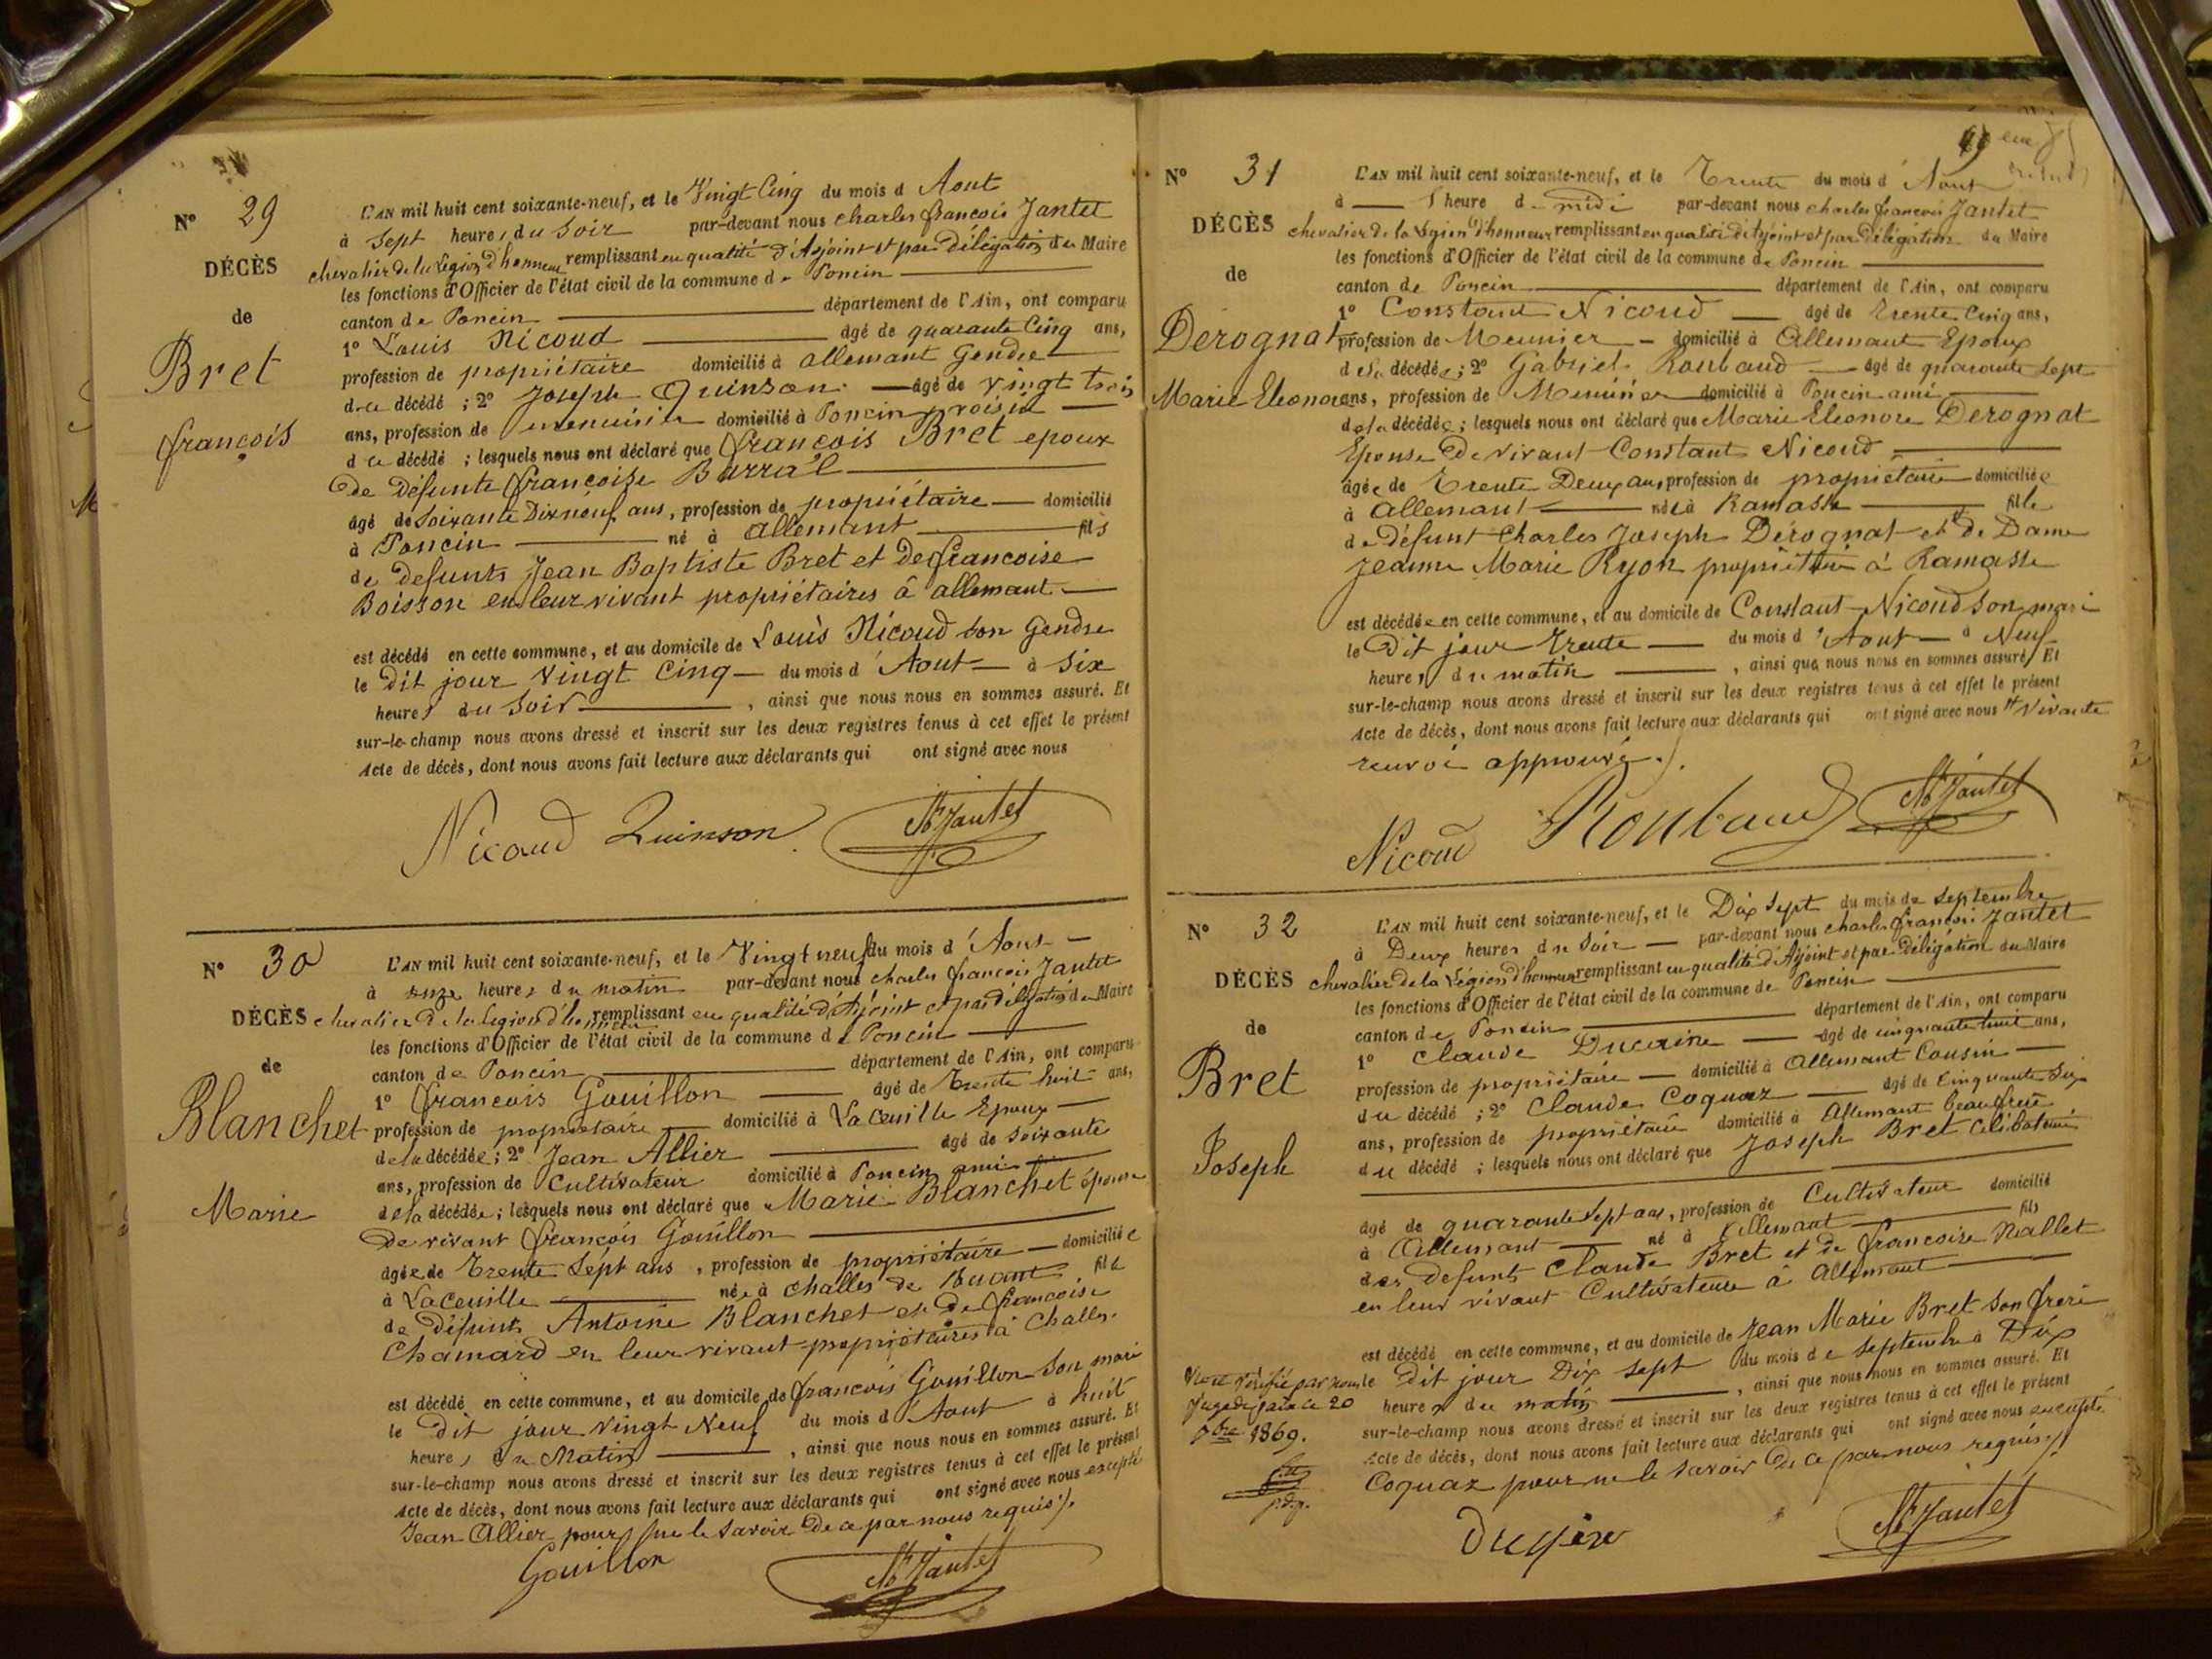 Nº 29
DÉCÈS
de
Bret
françois
L'AN mil huit cent soixante-neuf, et le Vingt Cinq du mois d Aout
à Sept heures du Soir par-devant nous charles françois Jantet
chevalier de la Légion d'honneur remplissant en qualité d'Adjoint et par Délégation du Maire
les fonctions d'Officier de l'état civil de la commune de Poncin
canton de Poncin département de l'Ain, ont comparu
1º Louis Nicoud âgé de quarante Cinq ans,
profession de propriétaire domicilié à allemant Gendre
du décédé ; 2º Joseph Quinson âgé de vingt trois
ans, profession de menuisier domicilié à Poncin voisin
du décédé ; lesquels nous ont déclaré que françois Bret epoux
de défunte françoise Barral
âgé de Soixante Dix neuf ans, profession de propriétaire domicilié
à Poncin né à allemant fils
de defunts Jean Baptiste Bret et de françoise
Boisson en leur vivant propriétaires à allemant
est décédé en cette commune, et au domicile de Louis Nicoud son Gendre
le dit jour Vingt Cinq du mois d'Aout à Six
heures du Soir , ainsi que nous nous en sommes assuré. Et
sur-le-champ nous avons dressé et inscrit sur les deux registres tenus à cet effet le présent
Acte de décès, dont nous avons fait lecture aux déclarants qui ont signé avec nous
Nicoud Quinson Jantet
Nº 30
DÉCÈS
de
Blanchet
Marie
L'AN mil huit cent soixante-neuf, et le Vingt neuf du mois d'Aout
à onze heures du matin par-devant nous charles françois Jantet
chevalier de la Legion d'honneur remplissant en qualité d'Adjoint et par délégation du Maire
les fonctions d'Officier de l'état civil de la commune de Poncin
canton de Poncin département de l'Ain, ont comparu
1º françois Gouillon âgé de Trente huit ans,
profession de propriétaire domicilié à Laceuille Epoux
de la décédée ; 2º Jean Allier âgé de soixante
ans, profession de Cultivateur domicilié à Poncin ami
de la décédée ; lesquels nous ont déclaré que Marie Blanchet épouse
de vivant françois Gouillon
âgée de Trente Sept ans , profession de propriétaire domiciliée
à Laceuille née à Challes de fille
de défunts Antoine Blanchet et de françoise
Chamard en leur vivant propriétaires à Challes.
est décédé en cette commune, et au domicile de françois Gouillon Son mari
le dit jour vingt Neuf du mois d'Aout à huit
heures du Matin , ainsi que nous nous en sommes assuré. Et
sur-le-champ nous avons dressé et inscrit sur les deux registres tenus à cet effet le présent
Acte de décès, dont nous avons fait lecture aux déclarants qui ont signé avec nous excepté
Jean Allier pour ne le Savoir de ce par nous requis
Gouillon Jantet
Nº 31
DÉCÈS
de
Derognat
Marie Eleonore
L'AN mil huit cent soixante-neuf, et le Trente du mois d'Aout
à heure de midi par-devant nous charles françois Jantet
chevalier de la Légion d'honneur remplissant en qualité d'Adjoint et par Délégation du Maire
les fonctions d'Officier de l'état civil de la commune de Poncin
canton de Poncin département de l'Ain, ont comparu
1º Constant Nicoud âgé de Trente Cinq ans,
profession de Meunier domicilié à Allemant Epoux
de la décédée ; 2º Gabriel Roubaud âgé de quarante Sept
ans, profession de domicilié à Poncin ami
de la décédée ; lesquels nous ont déclaré que Marie Eleonore Derognat
Epouse de vivant Constant Nicoud
âgée de Trente Deux ans, profession de propriétaire domiciliée
à Allemant née à Ramasse fille
de défunt Charles Joseph Dérognat et de Dame
Jeanne Marie Ryon propriétaire à Ramasse
est décédée en cette commune, et au domicile de Constant Nicoud Son mari
le Dit jour Trente du mois d'Aout à Neuf
heures du matin , ainsi que nous nous en sommes assuré. Et
sur-le-champ nous avons dressé et inscrit sur les deux registres tenus à cet effet le présent
Acte de décès, dont nous avons fait lecture aux déclarants qui ont signé avec nous vivante
renvoi approuvé
Nicoud Roubaud Jantet
Nº 32
DÉCÈS
de
Bret
Joseph
L'AN mil huit cent soixante-neuf, et le Dix Sept du mois de Septembre
à Deux heures du Soir par-devant nous charles françois Jantet
chevalier de la Légion d'honneur remplissant en qualité d'Adjoint et par délégation du Maire
les fonctions d'Officier de l'état civil de la commune de Poncin
canton de Poncin département de l'Ain, ont comparu
1º Claude Ducaire âgé de cinquante huit ans,
profession de propriétaire domicilié à Allemant Cousin
du décédé ; 2º Claude Coquaz âgé de Cinquante Six
ans, profession de propriétaire domicilié à Allemant beau frère
du décédé ; lesquels nous ont déclaré que Joseph Bret Célibataire
âgé de quarante Sept ans, profession de Cultivateur domicilié
à Allemant né à Allemant fils
des defunts Claude Bret et de françoise Nallet
en leur vivant Cultivateurs à Allemant
est décédé en cette commune, et au domicile de Jean Marie Bret Son frère
le dit jour Dix Sept du mois de Septembre à Dix
heures du matin , ainsi que nous nous en sommes assuré. Et
sur-le-champ nous avons dressé et inscrit sur les deux registres tenus à cet effet le présent
Acte de décès, dont nous avons fait lecture aux déclarants qui ont signé avec nous excepté
Coquaz pour ne le savoir de ce par nous requis
vérifié par nous
Juge de paix le 20
7bre 1869.
Jantet